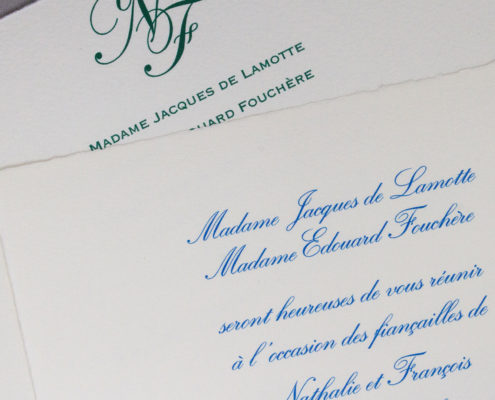 NF
MADAME JACQUES DE LAMOTTE
OUARD FOUCHÈRE
Madame Jacques de Lamotte
Madame Edouard Fouchère
seront heureuses de vous réunir
à l'occasion des fiançailles de
Nathalie et François